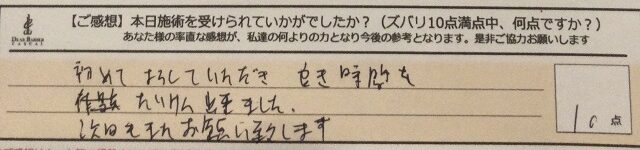 【ご感想】本日施術を受けられていかがでしたか？（ズバリ10点満点中、何点ですか？）
あなた様の率直な感想が、私達の何よりの力となり今後の参考となります。是非ご協力お願いします
DEAR BARBER
CASUAL
初めて おろしていただき 良き時間を
体験 たいけん出来ました。
次回もまたお願い致します
10 点